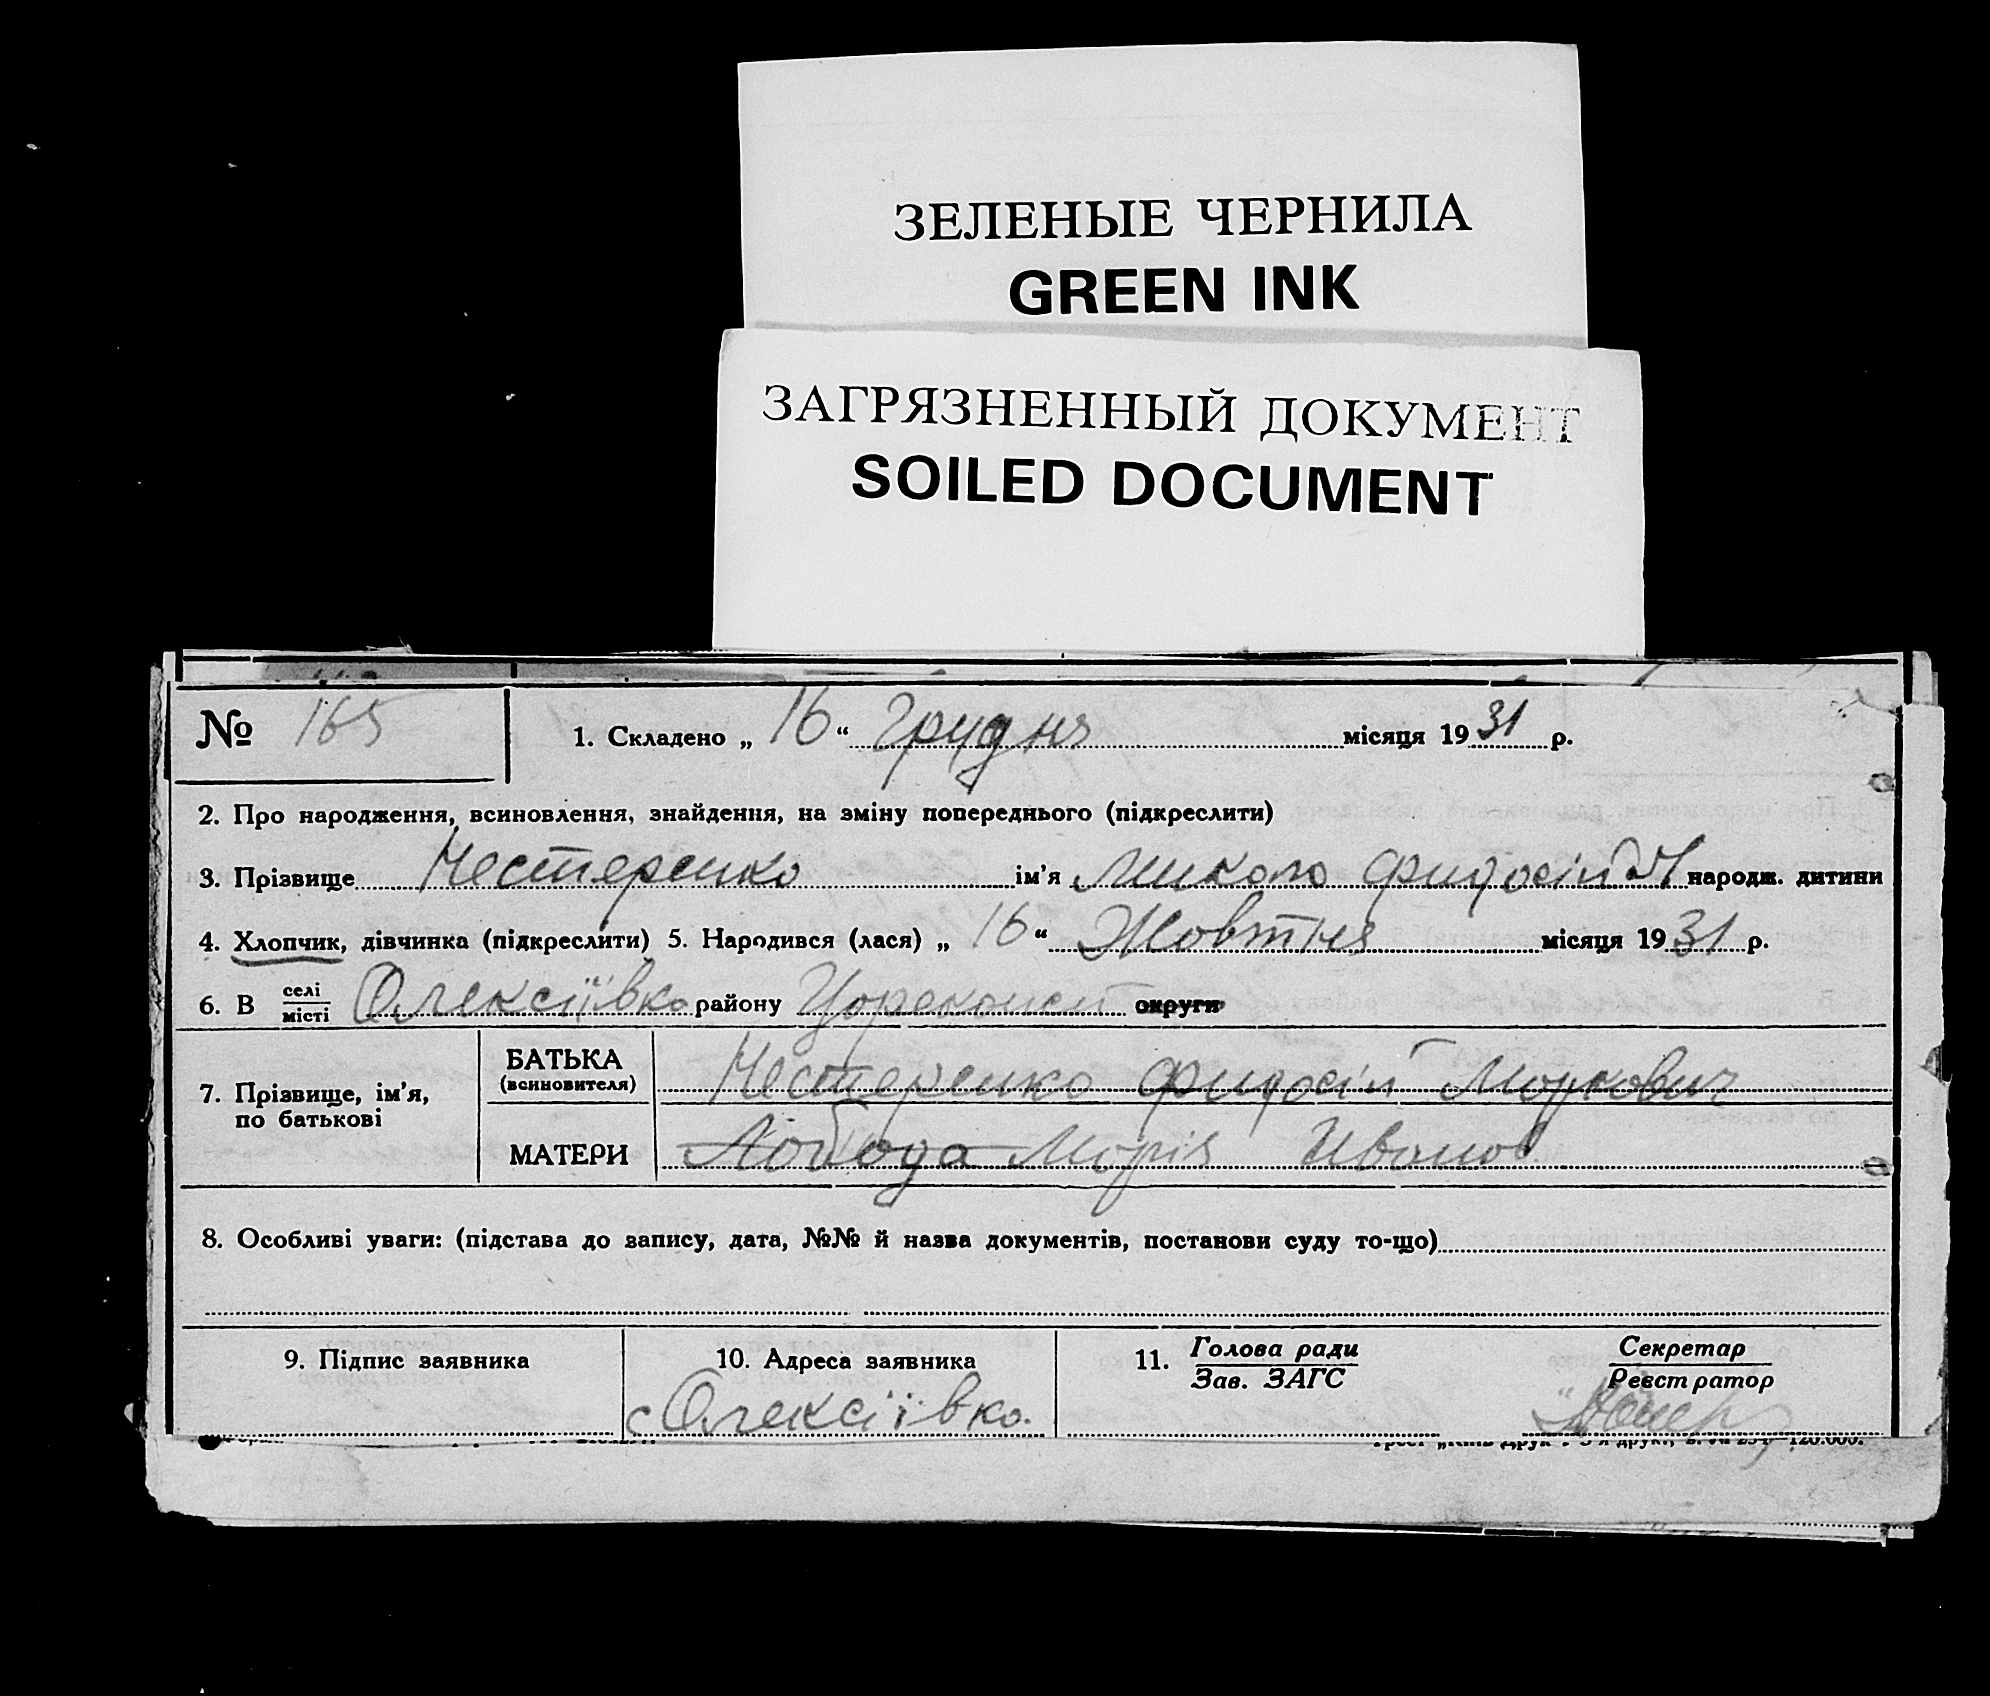 ЗЕЛЕНЫЕ ЧЕРНИЛА
GREEN INK
ЗАГРЯЗНЕННЫЙ ДОКУМЕНТ
SOILED DOCUMENT
№ 165 1. Складено „ 16 “ Грудня місяця 1931 р.
2. Про народження, всиновлення, знайдення, на зміну попереднього (підкреслити)
3. Прізвище Нестеренко ім’я Микола народж. дитини
4. Хлопчик, дівчинка (підкреслити) 5. Народився (лася) „ 16 “ Жовтня місяця 1931 р.
6. В селі місті Олексіївка району округи
7. Прізвище, ім’я, по батькові
БАТЬКА (всиновителя) Нестеренко Фидосій Маркович
МАТЕРИ Лобода Марія Иванов
8. Особливі уваги: (підстава до запису, дата, №№ й назва документів, постанови суду то-що)
9. Підпис заявника 10. Адреса заявника 11. Голова ради Зав. ЗАГС Секретар Реєстратор
с Олексіївка.